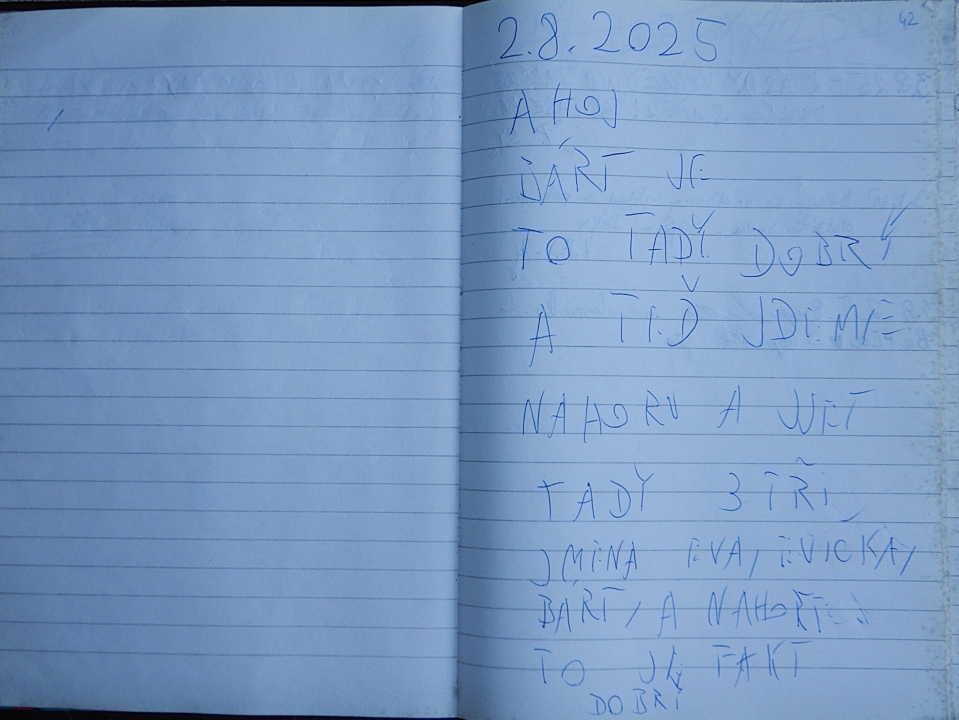 42
2.8.2025
AHOJ
BÁRT JE
TO TADY DOBRÝ
A TEĎ JDEME
NAHORU A
TADY 3 TŘI
JMÉNA EVA, EVICKA,
BART, A
TO JE FAKT
DOBRÍ